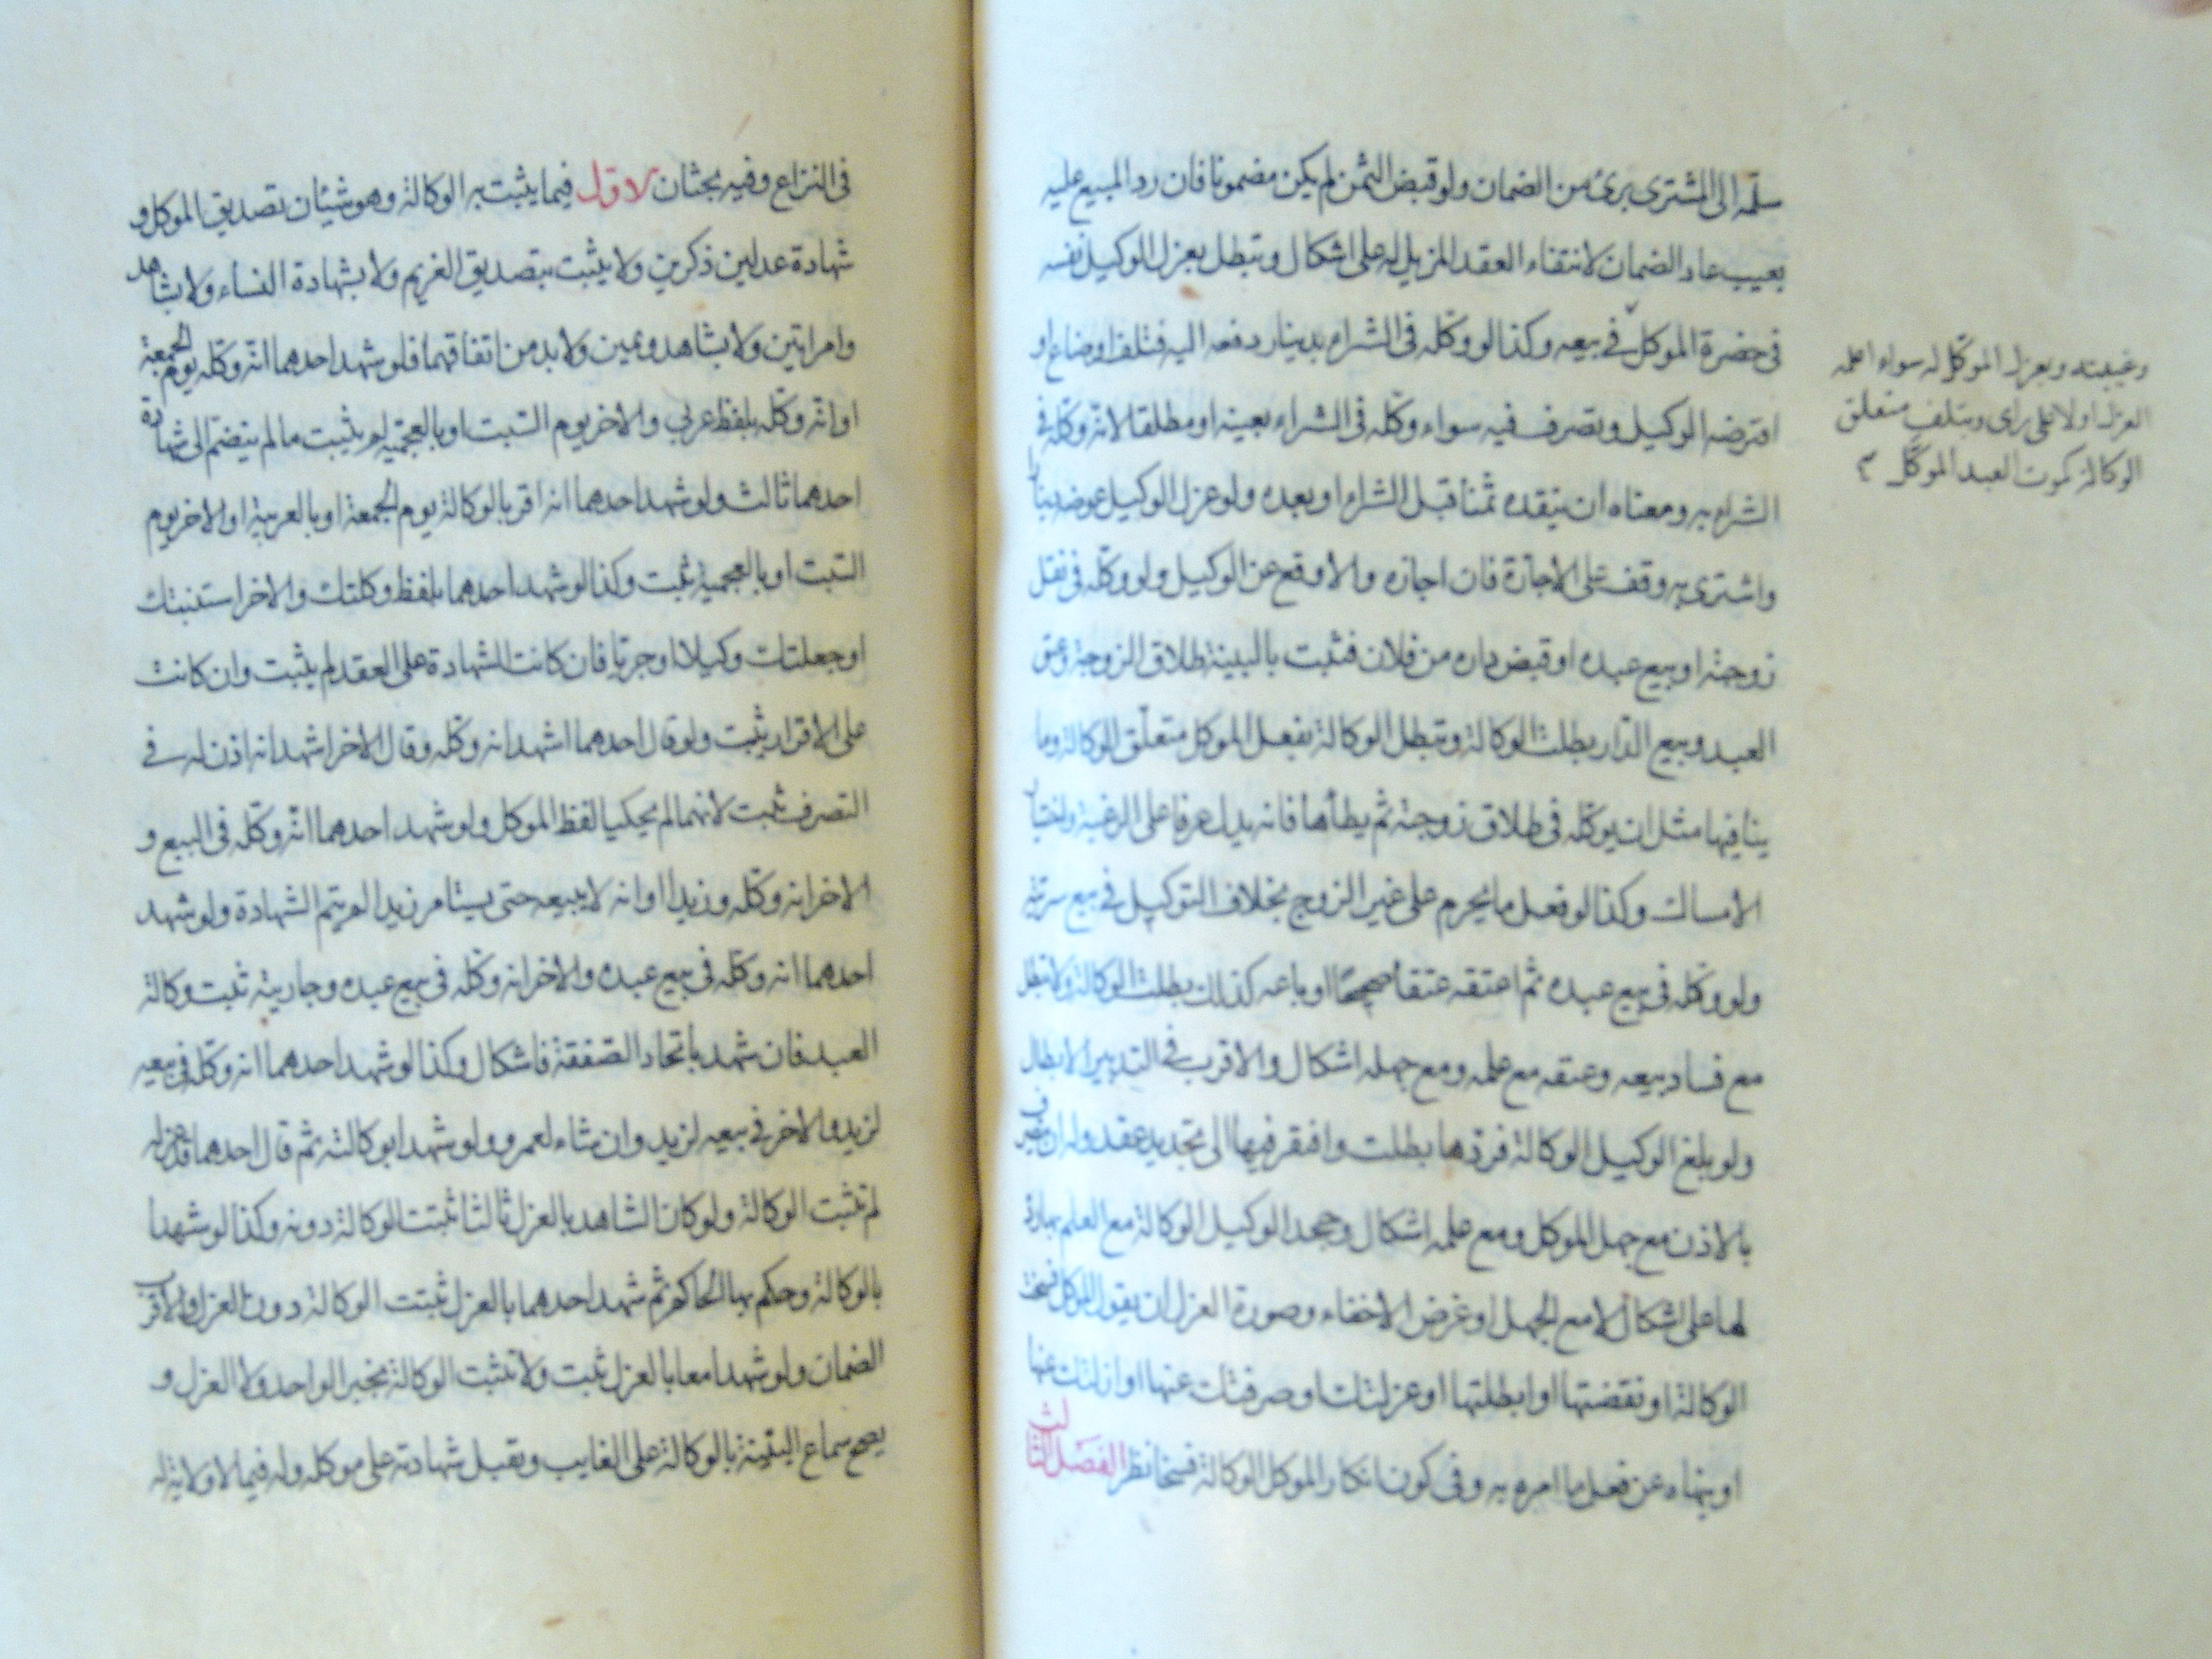 سلمه الى المشترى برئ من الضمان ولو قبض الثمن لم يكن مضمونا فان رد المبيع عليه
بعيب عاد الضمان لانتفاء العقد المزيل له على اشكال وتبطل بعزل الوكيل نفسه
فى حضرة الموكل فى بيعه وكذا لو وكله فى الشراء بدينار دفعه اليه فتلف او ضاع او
اقترضه الوكيل وتصرف فيه سواء وكله فى الشراء بعينه او مطلقا لانه وكله فى
الشراء به ومعناه ان ينقده ثمنا قبل الشراء او بعده ولو عزل الوكيل عوضه دينارا
واشترى به وقف على الاجازة فان اجازه والا وقع عن الوكيل ولو وكله فى نقل
زوجته او بيع عبده او قبض داره من فلان فثبت بالبينة طلاق الزوجة وعتق
العبد وبيع الدار بطلت الوكالة وتبطل الوكالة بفعل الموكل متعلق الوكالة وما
ينافيها مثل ان يوكله فى طلاق زوجته ثم يطأها فانه يدل عرفا على الرغبة واختيار
الامساك وكذا لو فعل ما يحرم على غير الزوج بخلاف التوكيل فى بيع سريته
ولو وكله فى بيع عبده ثم اعتقه عتقا صحيحا او باعه كذلك بطلت الوكالة ولا تبطل
مع فساد بيعه وعتقه مع علمه ومع جهله اشكال والاقرب فى التدبير الابطال
ولو بلغ الوكيل الوكالة فردها بطلت وافتقر فيها الى تجديد عقد وله ان يتصرف
بالاذن مع جهل الموكل ومع علمه اشكال وجحد الوكيل الوكالة مع العلم بها رد
لها على اشكال لا مع الجهل او غرض الاخفاء وصورة العزل ان يقول الموكل فسخت
الوكالة او نقضتها او ابطلتها او عزلتك او صرفتك عنها او ازلتك عنها
او ينهاه عن فعل ما امره به وفى كون انكار الموكل الوكالة فسخا نظر الفصل الثالث
وغيبته وبعزل الموكل له سواء اعلمه
العزل اولا على راى وبتلف متعلق
الوكالة كموت العبد الموكل
فى النزاع وفيه بحثان الاول فيما يثبت به الوكالة وهو شيئان تصديق الموكل و
شهادة عدلين ذكرين ولا يثبت بتصديق الغريم ولا بشهادة النساء ولا بشاهد
وامراتين ولا بشاهد ويمين ولا بد من اتفاقهما فلو شهد احدهما انه وكله يوم الجمعة
او انه وكله بلفظ عربى والاخر يوم السبت او بالعجمية لم يثبت ما لم ينضم الى شهادة
احدهما ثالث ولو شهد احدهما انه اقر بالوكالة يوم الجمعة او بالعربية او الاخر يوم
السبت او بالعجمية ثبت وكذا لو شهد احدهما بلفظ وكلتك والاخر استنبتك
او جعلتك وكيلا او جريا فان كانت الشهادة على العقد لم يثبت وان كانت
على الاقرار يثبت ولو قال احدهما اشهد انه وكله وقال الاخر اشهد انه اذن له فى
التصرف ثبت لانهما لم يحكيا لفظ الموكل ولو شهد احدهما انه وكله فى البيع و
الاخر انه وكله وزيدا او انه لا يبيعه حتى يستامر زيدا لم يتم الشهادة ولو شهد
احدهما انه وكله فى بيع عبده والاخر انه وكله فى بيع عبده وجاريته ثبت وكالة
العبد فان شهد باتحاد الصفقة فاشكال وكذا لو شهد احدهما انه وكله فى بيعه
لزيد والاخر فى بيعه لزيد وان شاء لعمرو ولو شهدا بوكالته ثم قال احدهما قد عزله
لم تثبت الوكالة ولو كان الشاهد بالعزل ثالثا ثبتت الوكالة دونه وكذا لو شهدا
بالوكالة وحكم بها الحاكم ثم شهد احدهما بالعزل ثبتت الوكالة دون العزل والاقرب
الضمان ولو شهدا معا بالعزل ثبت ولا تثبت الوكالة بخبر الواحد ولا العزل و
يصح سماع البينة بالوكالة على الغايب وتقبل شهادته على موكله وله فيما لا ولاية له